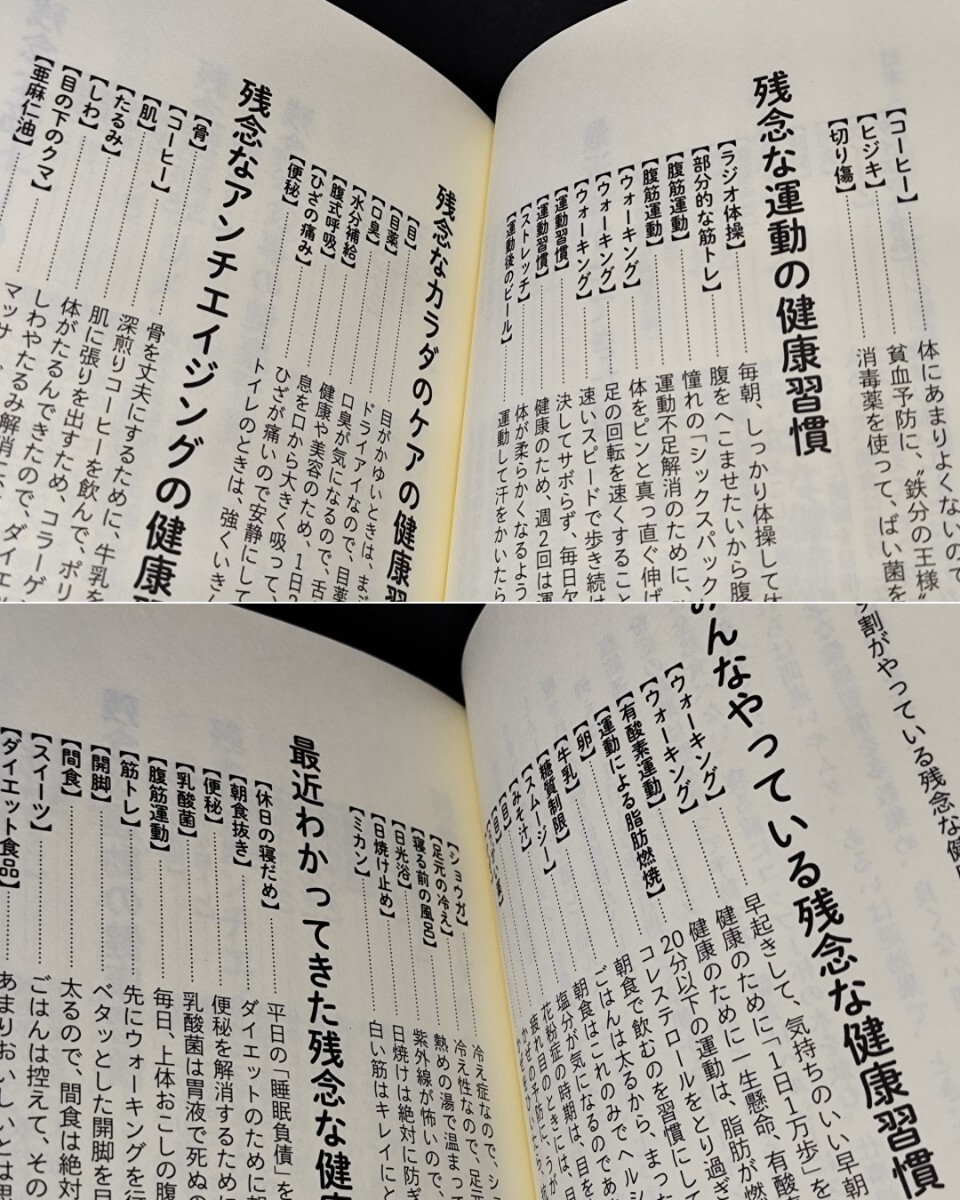 【コーヒー】…………体にあまりよくないので
【ヒジキ】…………貧血予防に、〝鉄分の王様〟
【切り傷】…………消毒薬を使って、ばい菌を
残念な運動の健康習慣
【ラジオ体操】…………毎朝、しっかり体操して
【部分的な筋トレ】…………腹をへこませたいから腹
【腹筋運動】…………憧れの「シックスパック
【腹筋運動】…………運動不足解消のために、
【ウォーキング】…………体をピンと真っ直ぐ伸ば
【ウォーキング】…………足の回転を速くすること
【ウォーキング】…………速いスピードで歩き続け
【運動習慣】…………決してサボらず、毎日欠
【運動習慣】…………健康のため、週2回は運
【ストレッチ】…………体が柔らかくなるよう
【運動後のビール】…………運動して汗をかいたら
残念なカラダのケアの健康習
【目】…………目がかゆいときは、ま
【目薬】…………ドライアイなので、目薬
【口臭】…………口臭が気になるので、舌
【水分補給】…………健康や美容のため、1日
【腹式呼吸】…………息を口から大きく吸って、
【ひざの痛み】…………ひざが痛いので安静にして
【便秘】…………トイレのときは、強くいき
残念なアンチエイジングの健康
【骨】…………骨を丈夫にするために、牛乳を
【コーヒー】…………深煎りコーヒーを飲んで、ポリ
【肌】…………肌に張りを出すため、コラーゲン
【たるみ】…………体がたるんできたので、ダイエッ
【しわ】…………しわやたるみ解消に、
【目の下のクマ】…………マッサ
【亜麻仁油】
割がやっている残念な健
みんなやっている残念な健康習慣
【ウォーキング】…………早起きして、気持ちのいい早朝
【ウォーキング】…………健康のために「1日1万歩」を
【有酸素運動】…………健康のために一生懸命、有酸
【運動による脂肪燃焼】…………20分以下の運動は、脂肪が燃
【卵】…………コレステロールをとり過ぎ
【牛乳】…………朝食で飲むのを習慣にして
【糖質制限】…………ごはんは太るから、まった
【スムージー】…………朝食はこれのみでヘルシ
【みそ汁】…………塩分が気になるのであ
【目】…………花粉症の時期は、目を
【目】…………疲れ目のときには、目
かぜの予防に、うが
【ショウガ】…………冷え症なので、シ
【足元の冷え】…………冷え性なので、足元
【寝る前の風呂】…………熱めの湯で温まって
【日光浴】…………紫外線が怖いので、
【日焼け止め】…………日焼けは絶対に防ぎ
【ミカン】…………白い筋はキレイにと
最近わかってきた残念な健
【休日の寝だめ】…………平日の「睡眠負債」を
【朝食抜き】…………ダイエットのために朝
【便秘】…………便秘を解消するために
【乳酸菌】…………乳酸菌は胃液で死ぬの
【腹筋運動】…………毎日、上体おこしの腹
【筋トレ】…………先にウォーキングを行
【開脚】…………ベタッとした開脚を目
【間食】…………太るので、間食は絶対
【スイーツ】…………ごはんは控えて、その
【ダイエット食品】…………あまりおいしいとは思